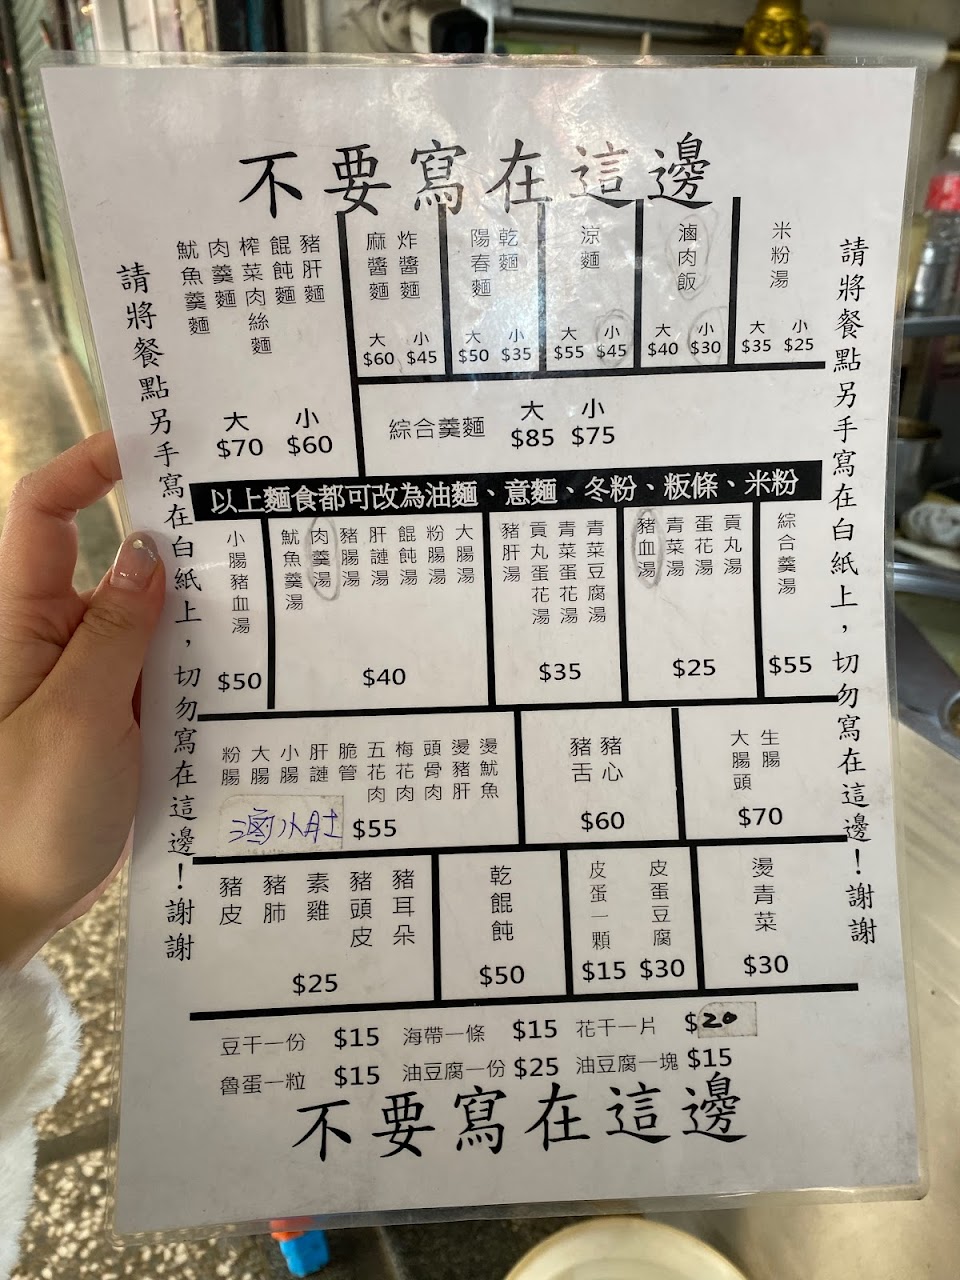 不要寫在這邊
請將餐點另手寫在白紙上，切勿寫在這邊！謝謝
魷魚羹麵
肉羹麵
榨菜肉絲麵
餛飩麵
豬肝麵
大 小
$70 $60
麻醬麵
炸醬麵
大 小
$60 $45
陽春麵
乾麵
大 小
$50 $35
涼麵
大 小
$55 $45
滷肉飯
大 小
$40 $30
米粉湯
大 小
$35 $25
綜合羹麵 大 小
$85 $75
以上麵食都可改為油麵、意麵、冬粉、粄條、米粉
小腸豬血湯
$50
魷魚羹湯
肉羹湯
豬腸湯
肝連湯
餛飩湯
粉腸湯
大腸湯
$40
豬肝湯
貢丸蛋花湯
青菜蛋花湯
青菜豆腐湯
$35
豬血湯
青菜湯
蛋花湯
貢丸湯
$25
綜合羹湯
$55
粉腸
大腸
小腸
肝連
脆管
五花肉
梅花肉
頭骨肉
燙豬肝
燙魷魚
滷小肚 $55
豬舌
豬心
$60
大腸頭
生腸
$70
豬皮
豬肺
素雞
豬頭皮
豬耳朵
$25
乾餛飩
$50
皮蛋一顆
$15
皮蛋豆腐
$30
燙青菜
$30
豆干一份 $15 海帶一條 $15 花干一片 $20
魯蛋一粒 $15 油豆腐一份 $25 油豆腐一塊 $15
不要寫在這邊
請將餐點另手寫在白紙上，切勿寫在這邊！謝謝